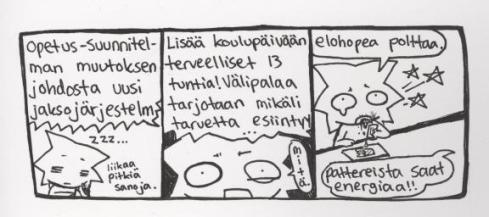 Opetus-suunnitel-
man muutoksen
johdosta uusi
jaksojärjestelm
zzz...
liikaa
pitkiä
sanoja.
Lisää koulupäivään
terveelliset 13
tuntia! Välipalaa
tarjotaan mikäli
tarvetta esiintyy
mitä
elohopea polttaa.
pattereista saat
energiaa!!